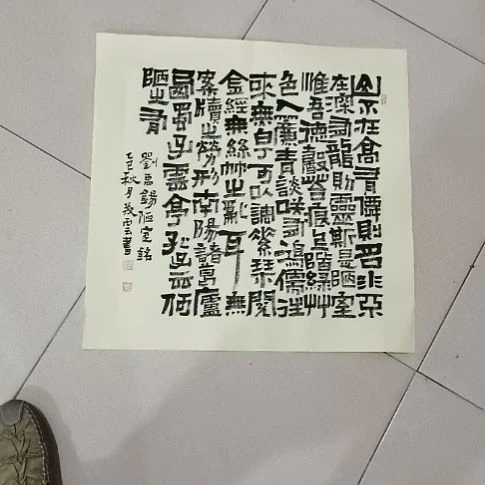 山不在高有僊則名水不
在深有龍則靈斯是陋室
惟吾德馨苔痕上階綠艸
色入簾青談咲有鴻儒往
來無白丁可以調素琴閱
金經無絲竹之亂耳無
案牘之勞形南陽諸葛廬
西蜀子雲亭孔子云何
陋之有
劉禹錫陋室銘
乙巳秋月云書